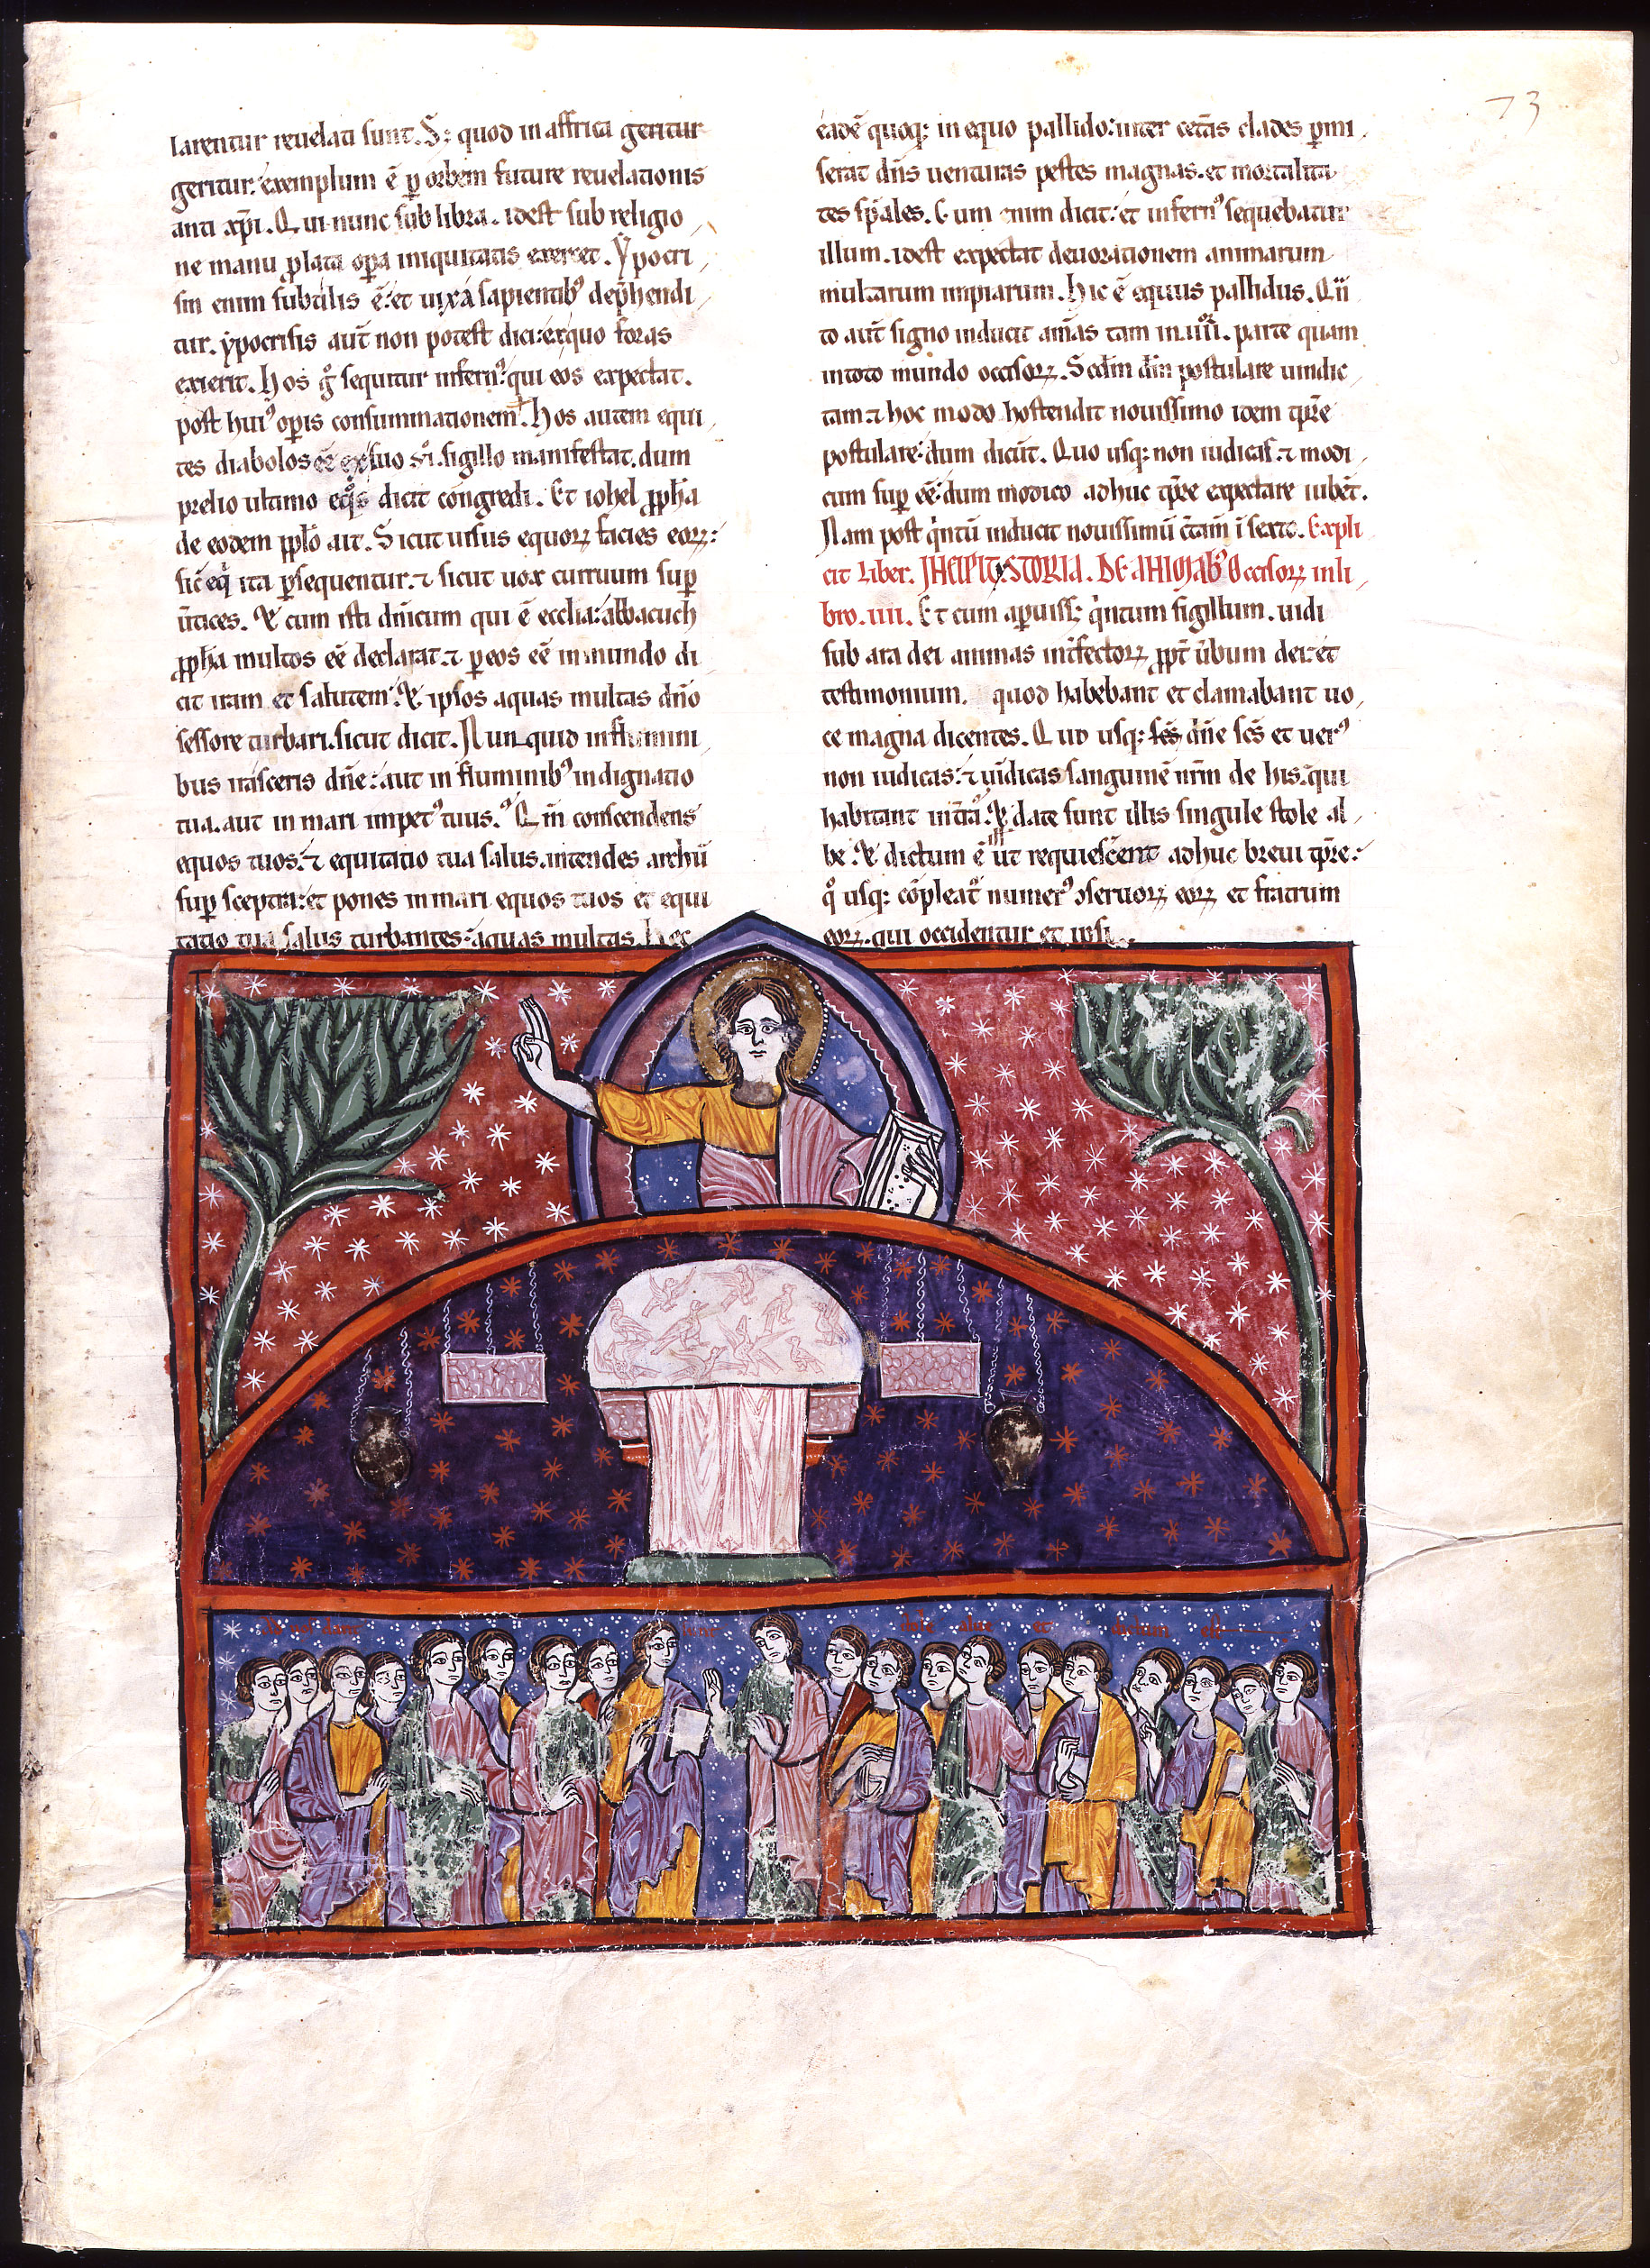 73
larentur reuelati sunt. S; quod in affrica geritur
geritur. exemplum ē p orbem future reuelationis
anti xp̄i. Qui nunc sub libra. idest sub religio
ne manu plata opa iniquitatis exercet. Ypocri
sin enim subtilis ē. et uix a sapientib' dep̄hendi
tur. ypocrisis aut̄ non potest dici: equo foras
exierit. Hos g̊ sequitur infern': qui eos expectat.
post hui' opis consummationem. Hos autem equi
tes diabolos eē ex suo sigillo manifestat. dum
prelio ultimo eqs dicit congredi. Et iohel pph̄a
de eodem pplo ait. Sicut uisus equoꝝ facies eoꝝ:
sic̄ eq̄ ita psequentur. ⁊ sicut uox curruum sup
ūtices. & cum isti dn̄icum qui ē ecclia: abbacuch
pph̄a multos eē declarat. ⁊ p eos eē in mundo di
cit iram et salutem. & ipsos aquas multas dn̄o
sessore turbari. sicut dicit. Nunquid in flumini
bus irasceris dn̄e: aut in fluminib' indignatio
tua. aut in mari impet' tuus. Qm̄ conscendens
equos tuos. ⁊ equitatio tua salus. intendes archū
sup sceptra: et pones in mari equos tuos et equi
tatio tua salus turbantes: aquas multas. Hec
eadē quoq; in equo pallido: inter cet̄as clades pmi
serat dn̄s uenturas pestes magnas. et mortalita
tes sp̄ales. Cum enim dicit: et infern' sequebatur
illum. idest expectat deuorationem animarum
multarum impiarum. Hic ē equus pallidus. Quī
to aut̄ signo inducit am̄as tam in.iiii. parte quam
in toto mundo occisoꝝ. Sedm̄ dm̄ postulare uindic
tam. ⁊ hoc modo hostendit nouissimo idem tp̄re
postulare: dum dicūt. Quo usq; non iudicas. ⁊ modi
cum sup eē: dum modico adhuc tp̄re expectare iubēt.
Nam post q̇ntū inducit nouissimū ī sexto. Expli
cit Liber. INCIPIT STORIA. DE ANIMAB' Occisoꝝ in li
bro.iiii. Et cum apuiss; q̇ntum sigillum. uidi
sub ara dei animas int̄fectoꝝ ppt̄ ūbum dei: et
testimonium. quod habebant et clamabant uo
ce magna dicentes. Quo usq; dn̄e scs̄ et uer'
non iudicas: ⁊ uīdicas sanguinē nr̄m de his. qui
habitant in t̄ra. & date sunt illis singule stole al
be. & dictum ē ut requiescerent adhuc breui tp̄re:
q̊ usq; cōpleat̄ numer' ɔseruoꝝ eoꝝ et fratrum
eoꝝ. qui occidentur et ipsi.
date sunt stole albe et dictum est